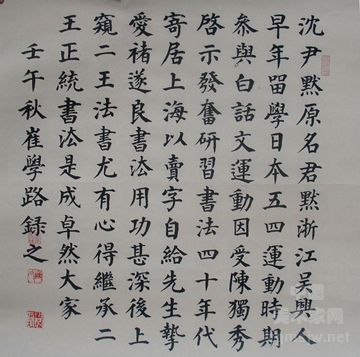 沈尹默原名君默浙江吴興人
早年留學日本五四運動時期
叅與白話文運動因受陳獨秀
啓示發奮研習書法四十年代
寄居上海以賣字自給先生摯
愛褚遂良書法用功甚深後上
窺二王法書尤有心得繼承二
王正統書法是成卓然大家
壬午秋崔學路録之